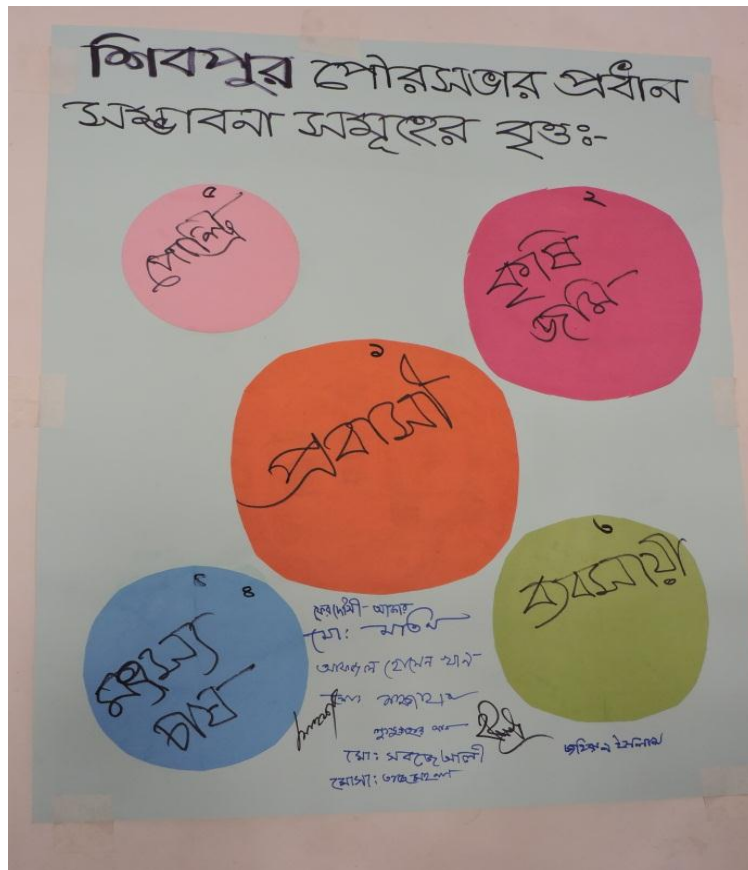 শিবপুর পৌরসভার প্রধান
সম্ভাবনা সমূহের বৃত্তঃ-
৫
পোল্ট্রি
২
কৃষি
জমি
১
প্রবাসী
৩
ব্যবসায়ী
৪
মৎস্য
চাষ
মো: মতিন
হোসেন খান
মো: সবজে আলী
মোসা:
ইসলাম